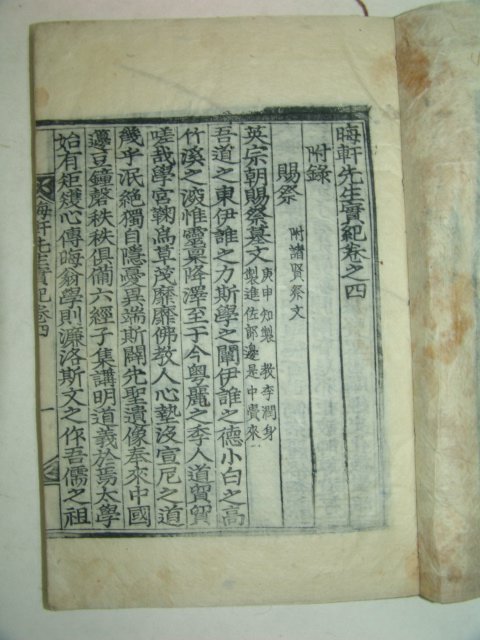 晦軒先生實紀卷之四
附錄
賜祭 附諸賢祭文
英宗朝賜祭墓文 庚申知製 教李潤身
製進佐郎邊是中賫來
吾道之東伊誰之力斯學之闡伊誰之德小白之高
竹溪之淡惟靈寔降澤至于今粤麗之季人道貿貿
嗟哉學宮鞠爲草茂靡靡佛教人心墊沒宣尼之道
幾乎泯絶獨自隱憂異端斯闢先聖遺像奉來中國
籩豆鐘磬秩秩俱備六經子集講明道義於焉太學
始有矩矱心傳晦翁學則濂洛斯文之作吾儒之祖
晦軒先生實紀卷四
一